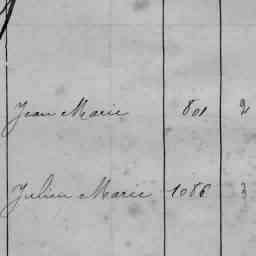 Jean Marie 801 2
Julien Marie 1086 3